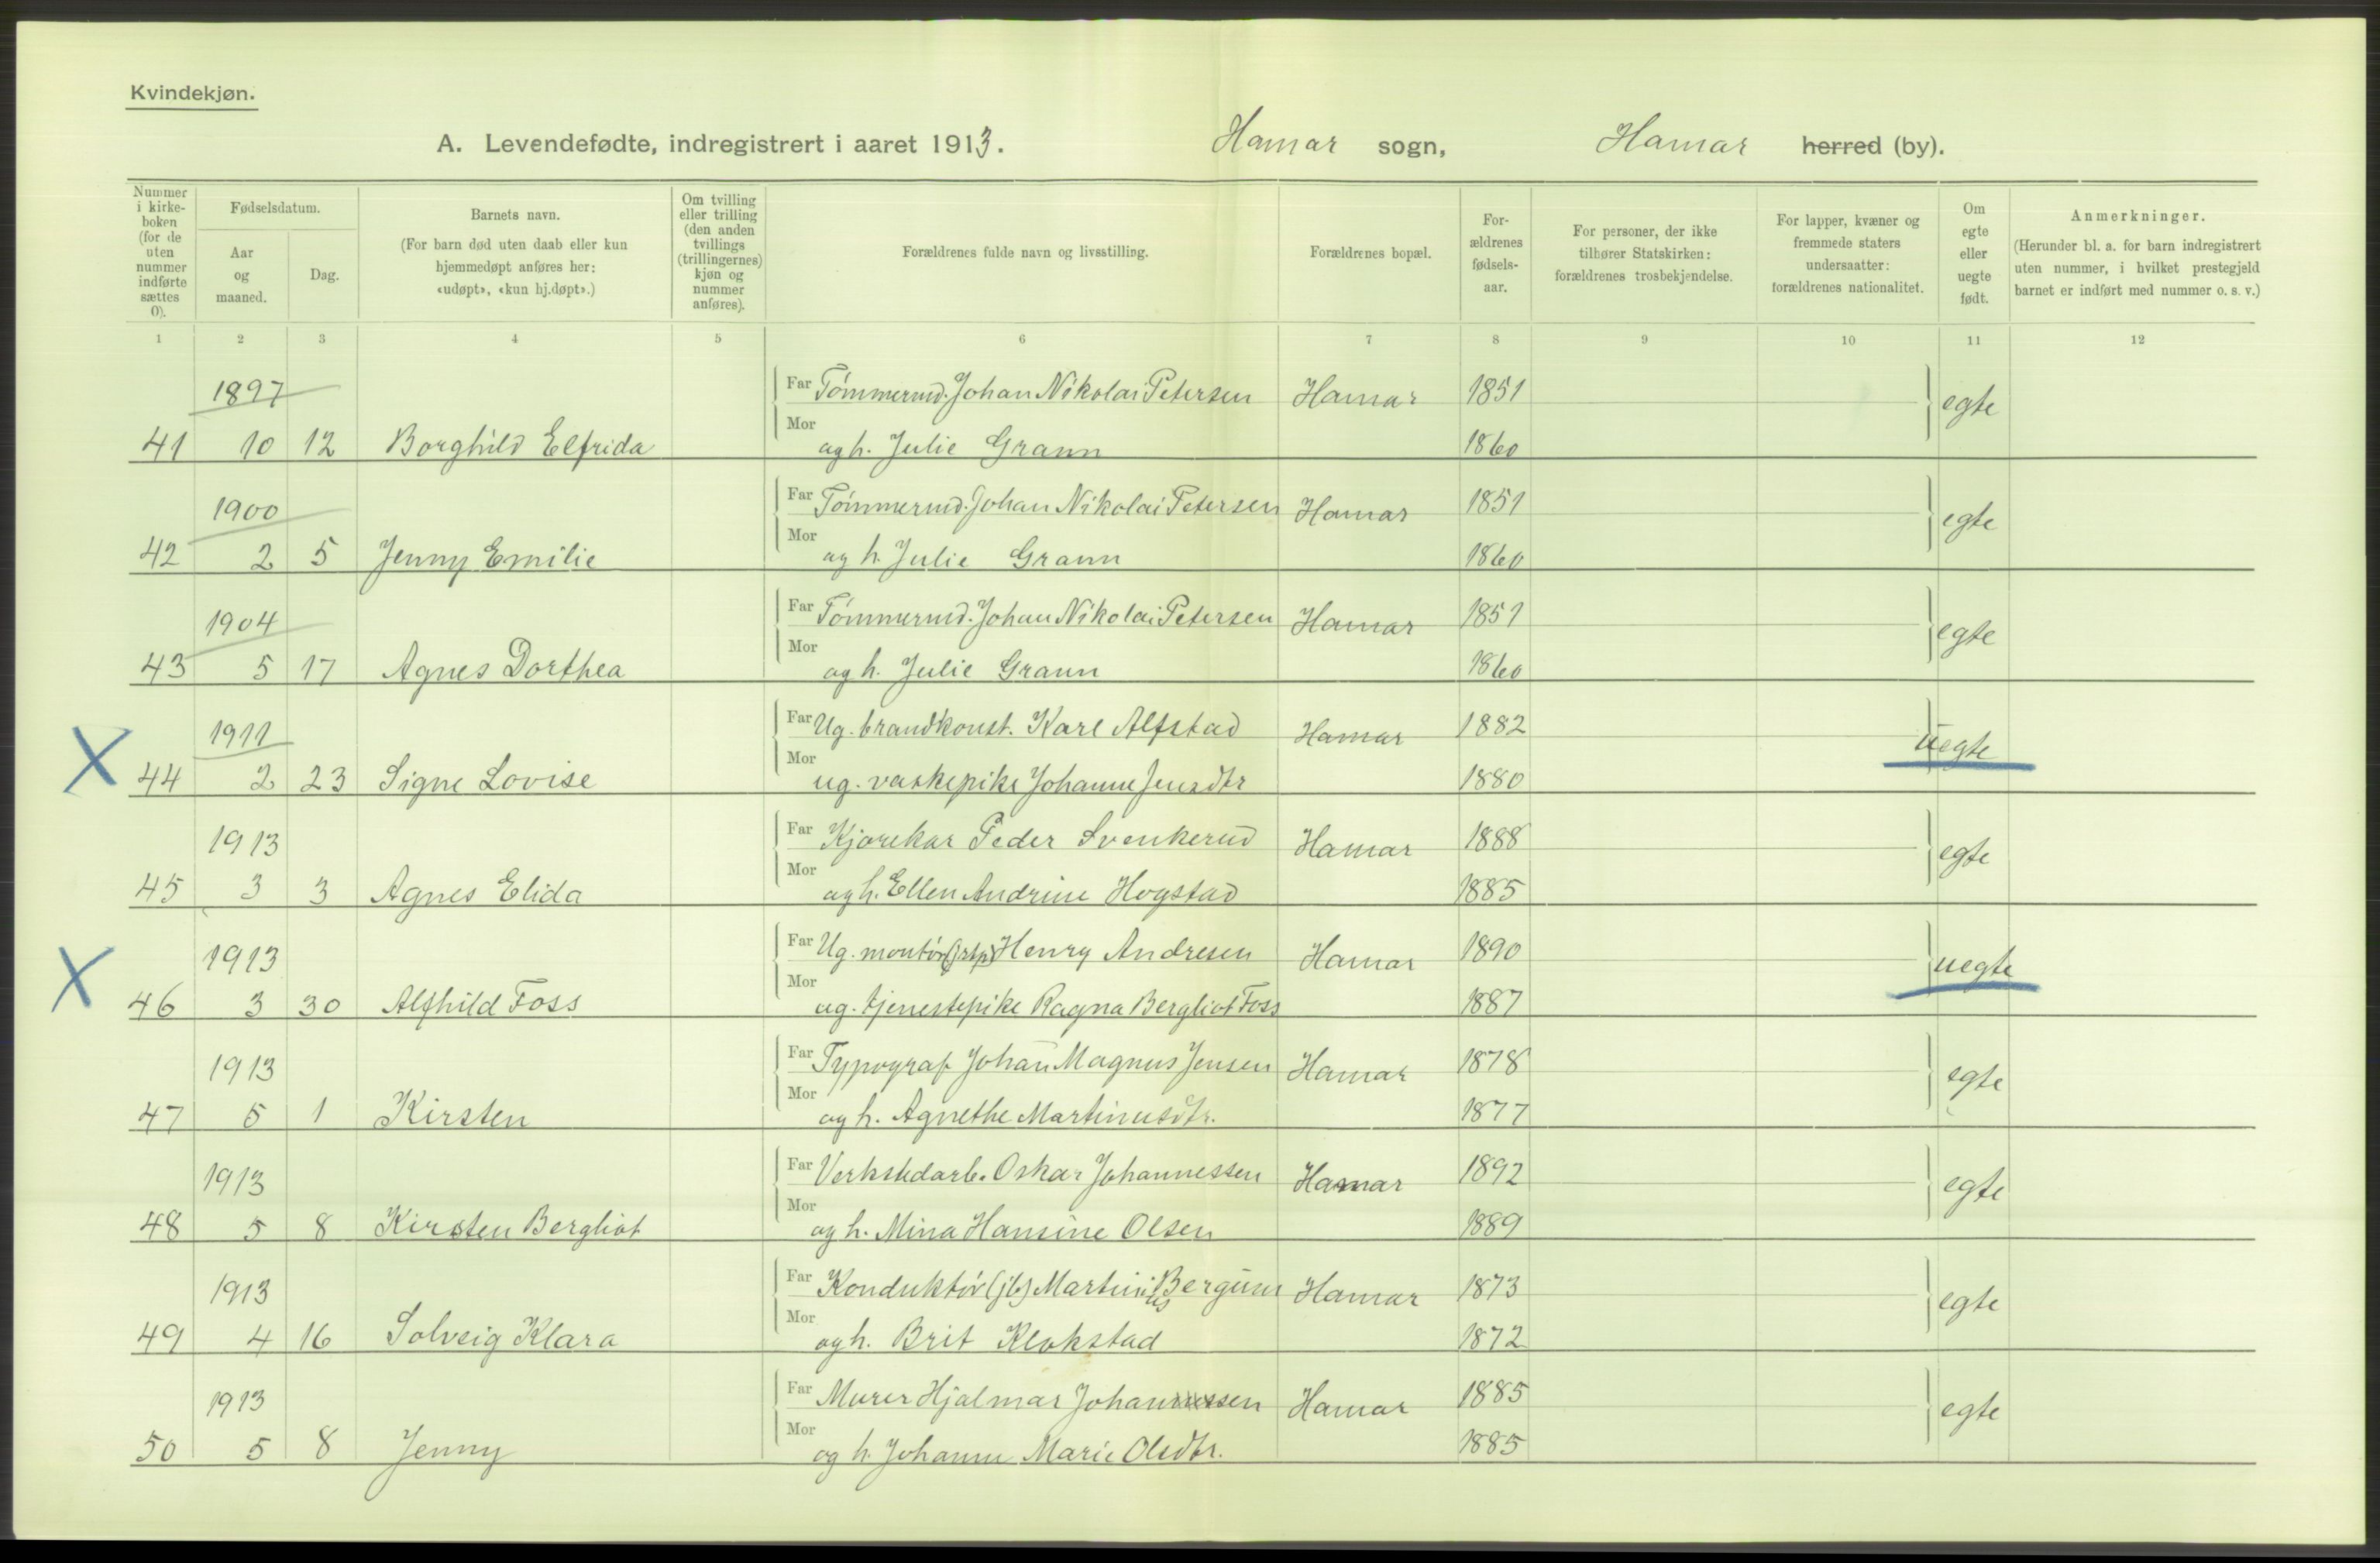 Kvindekjøn.
A. Levendefødte, indregistrert i aaret 1913. Hamar sogn, Hamar herred (by).
Nummer i kirke-boken (for de uten nummer indførte sættes 0).
Fødselsdatum.
Aar og maaned.
Dag.
Barnets navn.
(For barn død uten daab eller kun hjemmedøpt anføres her: «udøpt», «kun hj.døpt».)
Om tvilling eller trilling (den anden tvillings (trillingernes) kjøn og nummer anføres).
Forældrenes fulde navn og livsstilling.
Forældrenes bopæl.
For-ældrenes fødsels-aar.
For personer, der ikke tilhører Statskirken: forældrenes trosbekjendelse.
For lapper, kvæner og fremmede staters undersaatter: forældrenes nationalitet.
Om egte eller uegte født.
Anmerkninger.
(Herunder bl. a. for barn indregistrert uten nummer, i hvilket prestegjeld barnet er indført med nummer o. s. v.)
1 2 3 4 5 6 7 8 9 10 11 12
1897 Far Tømmermd. Johan Nikolai Petersen Hamar 1851 egte
41 10 12 Borghild Elfrida Mor og h. Julie Grann 1860
1900 Far Tømmermd. Johan Nikolai Petersen Hamar 1851 egte
42 2 5 Jenny Emilie Mor og h. Julie Grann 1860
1904 Far Tømmermd. Johan Nikolai Petersen Hamar 1851 egte
43 5 17 Agnes Dorthea Mor og h. Julie Grann 1860
1911 Far Ug. brandkonst. Karl Alfstad Hamar 1882 uegte
X 44 2 23 Signe Lovise Mor ug. vaskepike Johanne Jensdtr 1880
1913 Far Kjørekar Peder Svenkerud Hamar 1888 egte
45 3 3 Agnes Elida Mor og h. Ellen Andrine Hogstad 1885
1913 Far Ug. montør Henry Andresen Hamar 1890 uegte
X 46 3 30 Alfhild Foss Mor ug. tjenestepike Ragna Bergliot Foss 1887
1913 Far Typograf Johan Magnus Jensen Hamar 1878 egte
47 5 1 Kirsten Mor og h. Agnethe Martinusdtr. 1877
1913 Far Verkstedarb. Oskar Johannessen Hamar 1892 egte
48 5 8 Kirsten Bergliot Mor og h. Mina Hansine Olsen 1889
1913 Far Konduktør (jb) Martinius Bergum Hamar 1873 egte
49 4 16 Solveig Klara Mor og h. Brit Klokstad 1872
1913 Far Murer Hjalmar Johansen Hamar 1885 egte
50 5 8 Jenny Mor og h. Johanne Marie Olsdtr. 1885